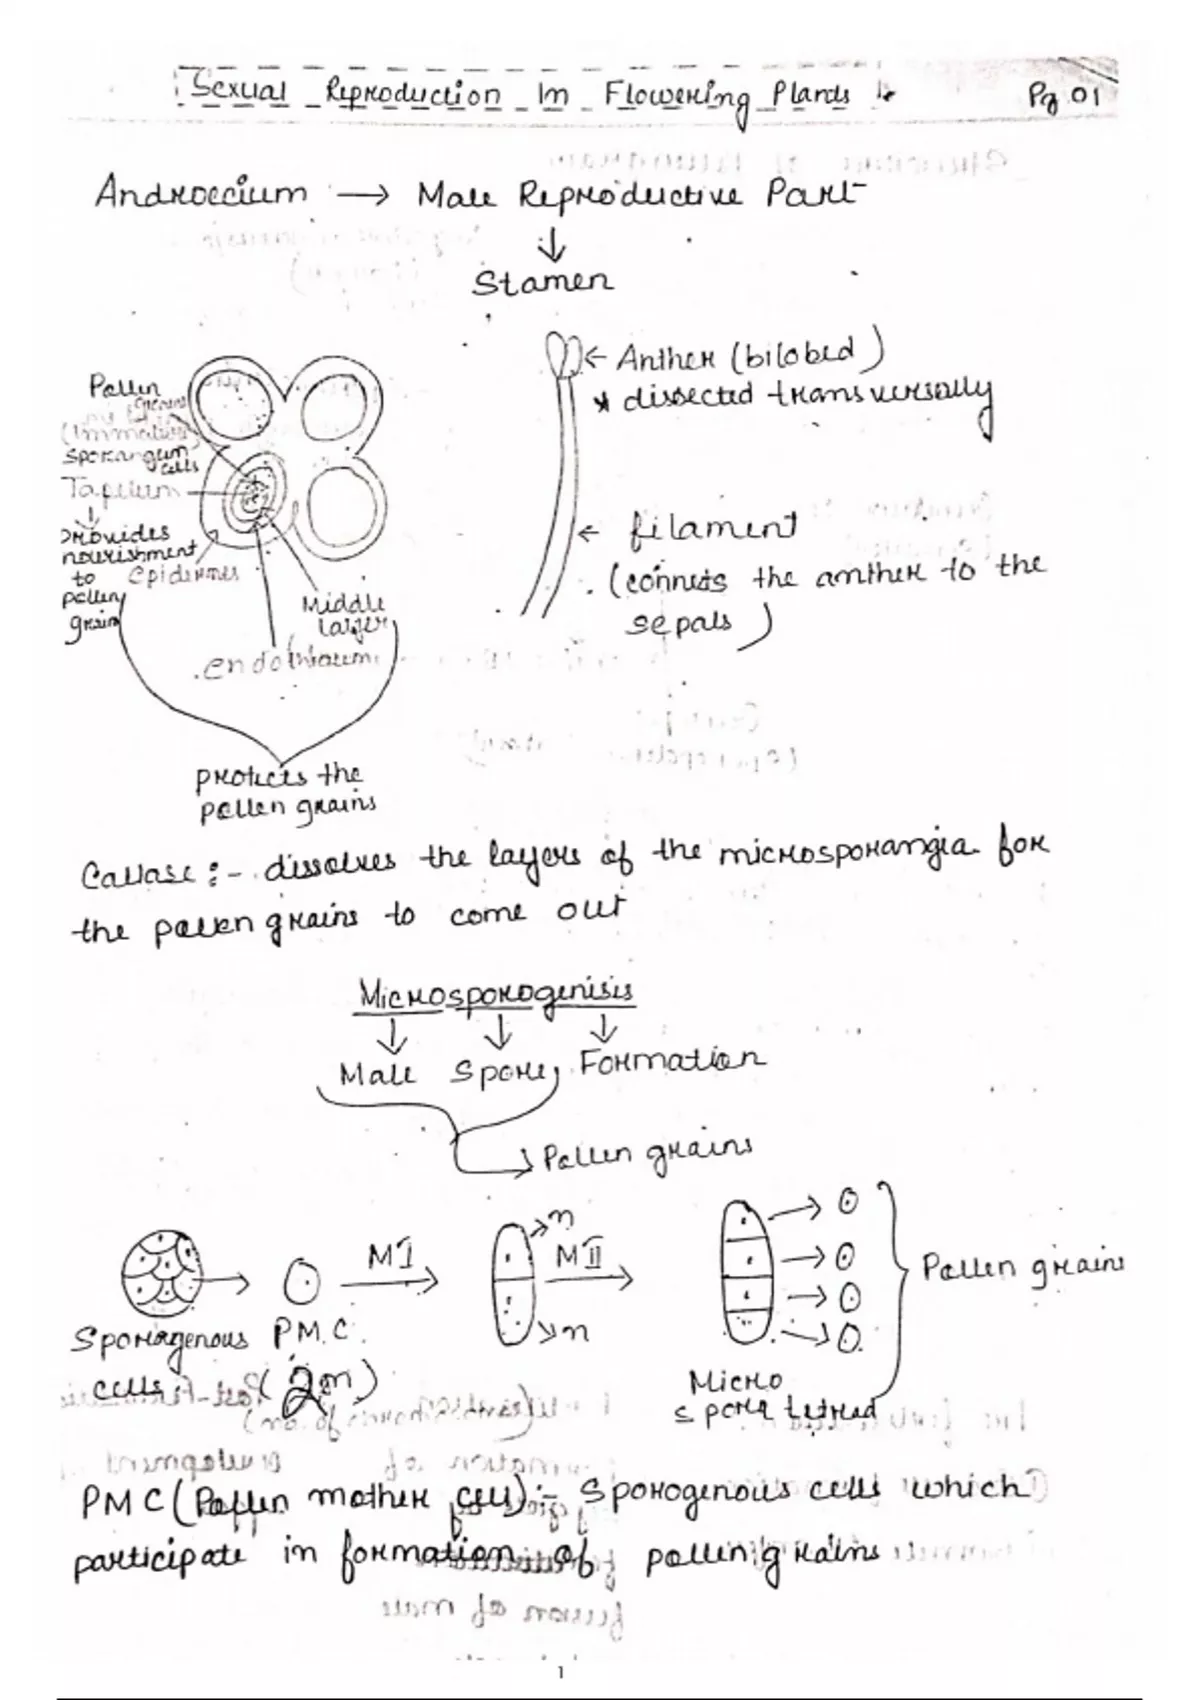 Sexual Reproduction In Flowering Plants
Pg 01
Androecium → Male Reproductive Part
↓
Stamen
← Anther (bilobed)
* dissected transversally
← filament
(connects the anther to the
sepals)
Pollen
grains
(Immature)
Sporangum
cells
Tapetum
↓
provides
nourishment
to
pollen
grain
epidermis
Middle
layer
endothecium
protects the
pollen grains
Callase :- dissolves the layers of the microsporangia for
the pollen grains to come out
Microsporogenisis
↓ ↓ ↓
Male Spore, Formation
→ Pollen grains
Sporogenous
cells
PMC
(2n)
MI
n
n
MII
Micro
spore tetrad
Pollen grains
PMC (Pollen mother cell):- Sporogenous cells which
participate in formation of pollen grains
1